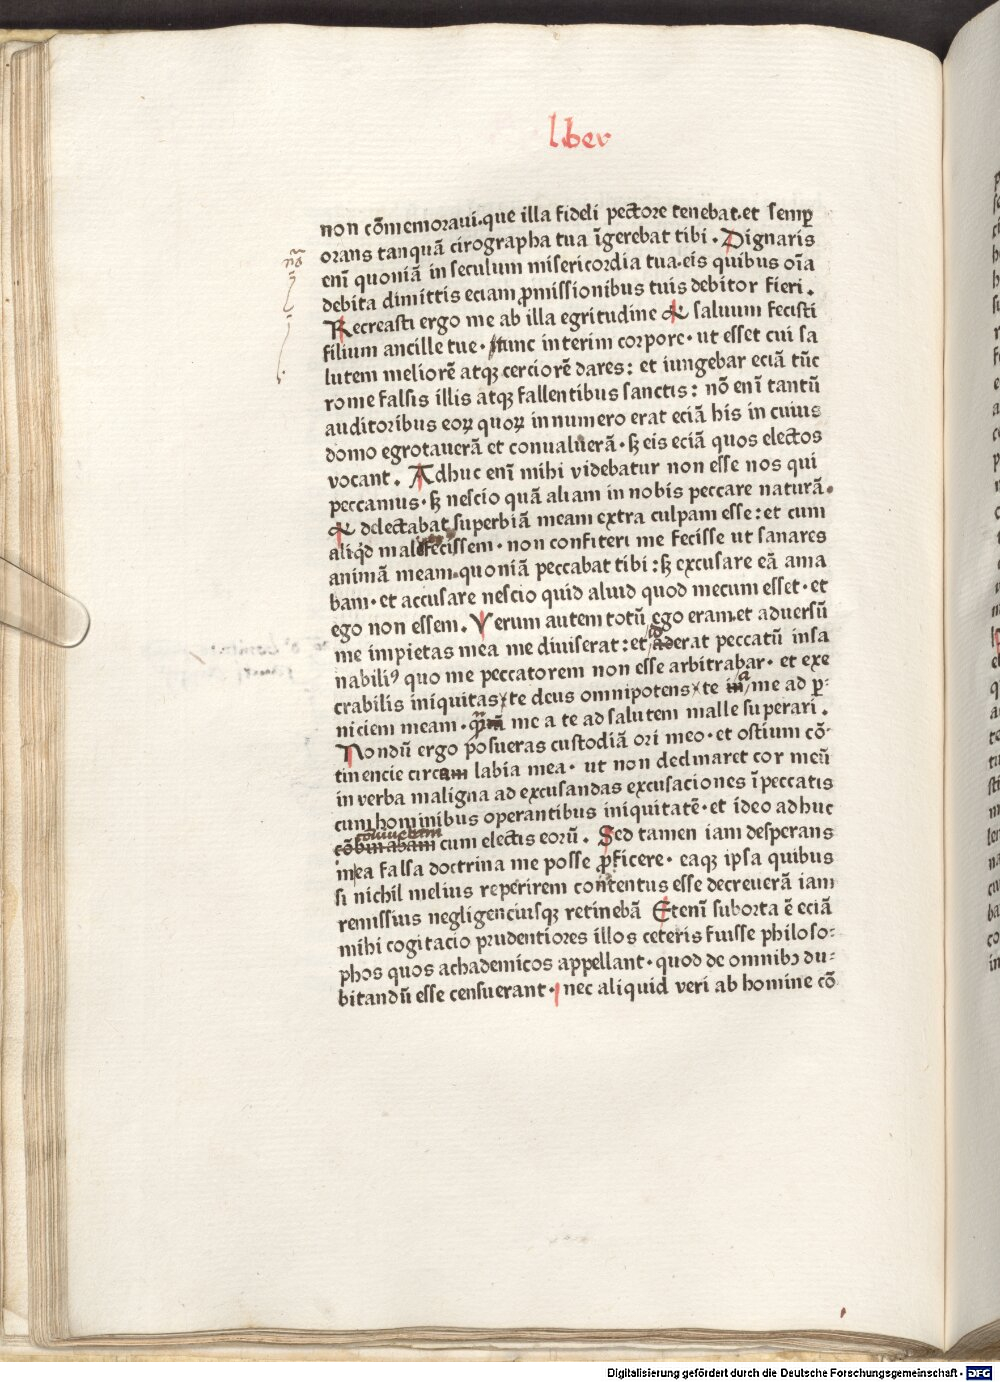 liber
non cōmemoraui.que illa fideli pectore tenebat.et semꝑ
orans tanquā cirographa tua īgerebat tibi . Dignaris
enī quoniā in seculum misericordia tua.eis quibus oīa
debita dimittis eciam ꝓmissionibus tuis debitor fieri .
Recreasti ergo me ab illa egritudine & saluum fecisti
filium ancille tue · tunc interim corpore · ut esset cui sa
lutem meliorē atqꝫ cerciorē dares : et iungebar eciā tūc
rome falsis illis atqꝫ fallentibus sanctis : nō enī tantū
auditoribus eoꝝ quoꝝ in numero erat eciā his in cuius
domo egrotauerā et conualuerā · sꝫ eis eciā quos electos
vocant . Adhuc enī mihi videbatur non esse nos qui
peccamus · sꝫ nescio quā aliam in nobis peccare naturā.
& delectabat superbiā meam extra culpam esse : et cum
aliqͥd male fecissem · non confiteri me fecisse ut sanares
animā meam.quoniā peccabat tibi : sꝫ excusare eā ama
bam · et accusare nescio quid aliud quod mecum esset · et
ego non essem . Verum autem totū ego eram.et aduersū
me impietas mea me diuiserat : et aderat peccatū insa
nabiliꝰ quo me peccatorem non esse arbitrabar · et exe
crabilis iniquitas te deus omnipotens te in me ad ꝑ-
niciem meam · me a te ad salutem malle superari .
Nondū ergo posueras custodiā ori meo · et ostium cō-
tinencie circam labia mea · ut non declinaret cor meū
in verba maligna ad excusandas excusaciones ī peccatis
cum hominibus operantibus iniquitatē · et ideo adhuc
cōbinabam cum electis eorū . Sed tamen iam desperans
mea falsa doctrina me posse ꝓficere · eaqꝫ ipsa quibus
si nichil melius reperirem contentus esse decreuerā iam
remissius negligenciusqꝫ retinebā Etenī suborta ē eciā
mihi cogitacio prudentiores illos ceteris fuisse philoso-
phos quos achademicos appellant · quod de omnibꝫ du-
bitandū esse censuerant · nec aliquid veri ab homine cō
Digitalisierung gefördert durch die Deutsche Forschungsgemeinschaft - DFG